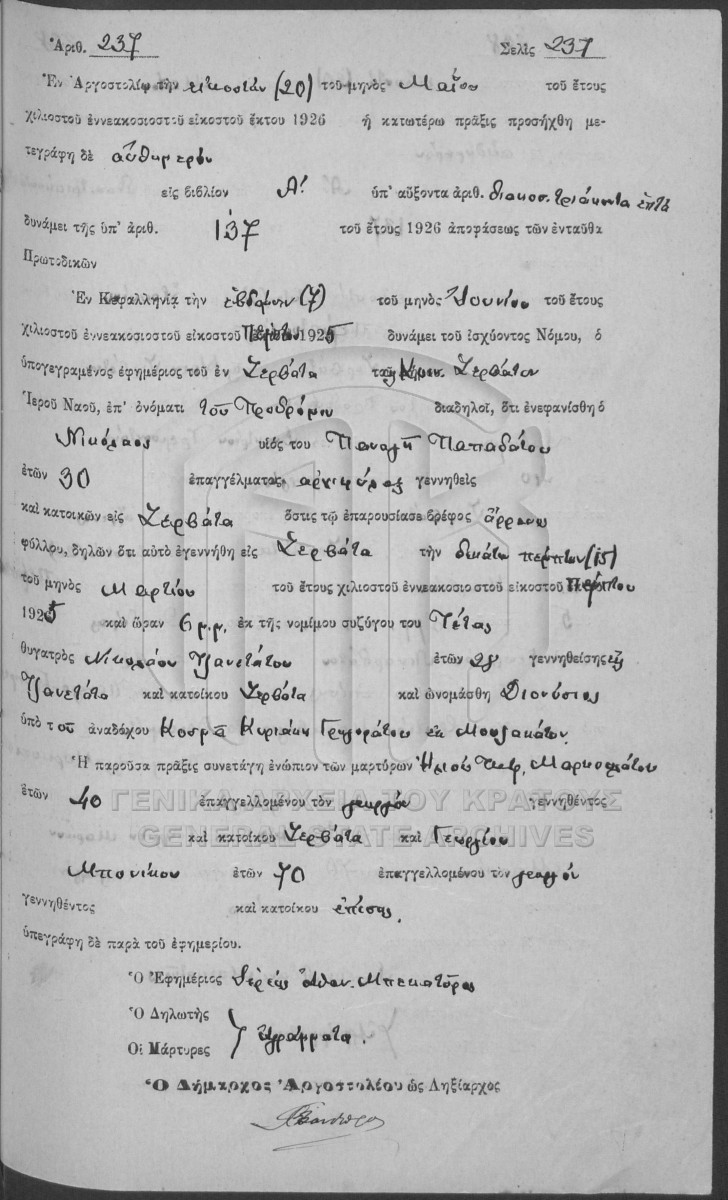 Ἀριθ. 237 Σελὶς 237
Ἐν Ἀργοστολίῳ τὴν εἰκοστὴν (20) τοῦ μηνὸς Μαΐου τοῦ ἔτους
χιλιοστοῦ ἐννεακοσιοστοῦ εἰκοστοῦ ἕκτου 1926 ἡ κατωτέρω πρᾶξις προσήχθη με-
τεγράφη δὲ αὐθημερόν
εἰς βιβλίον Α΄. ὑπ᾽ αὔξοντα ἀριθ. διακοσ. τριάκοντα ἑπτὰ
δυνάμει τῆς ὑπ᾽ ἀριθ. 137 τοῦ ἔτους 1926 ἀποφάσεως τῶν ἐνταῦθα
Πρωτοδικῶν
Ἐν Κεφαλληνίᾳ τὴν ἑβδόμην (7) τοῦ μηνὸς Ἰουνίου τοῦ ἔτους
χιλιοστοῦ ἐννεακοσιοστοῦ εἰκοστοῦ Πέμπτου 1925 δυνάμει τοῦ ἰσχύοντος Νόμου, ὁ
ὑπογεγραμένος ἐφημέριος τοῦ ἐν Ζερβάτα Ζερβάτων
Ἱεροῦ Ναοῦ, ἐπ᾽ ὀνόματι τοῦ Προδρόμου διαδηλοῖ, ὅτι ἐνεφανίσθη ὁ
Νικόλαος υἱός του Παναγῆ Παπαδάτου
ἐτῶν 30 ἐπαγγέλματος ἀρχιφύλαξ γεννηθεὶς
καὶ κατοικῶν εἰς Ζερβάτα ὅστις τῷ ἐπαρουσίασε βρέφος ἄρρενος
φύλλου, δηλῶν ὅτι αὐτὸ ἐγεννήθη εἰς Ζερβάτα τὴν δεκάτην πέμπτην (15)
τοῦ μηνὸς Μαρτίου τοῦ ἔτους χιλιοστοῦ ἐννεακοσιοστοῦ εἰκοστοῦ Πέμπτου
1925 καὶ ὥραν 6 μ.μ. ἐκ τῆς νομίμου συζύγου του Τέτας
θυγατρὸς Νικολάου Τζανετάτου ἐτῶν 28 γεννηθείσης εἰς
Τζανετάτα καὶ κατοίκου Ζερβάτα καὶ ὠνομάσθη Διονύσιος
ὑπὸ τοῦ ἀναδόχου Κοσμᾶ Κυριάκη Γρηγοράτου ἐκ Μουζακάτων.
Ἡ παροῦσα πρᾶξις συνετάγη ἐνώπιον τῶν μαρτύρων Ἠλιοῦ Μαρκουλάτου
ἐτῶν 40 ἐπαγγελλομένου τὸν γεωργόν γεννηθέντος
καὶ κατοίκου Ζερβάτα καὶ Γεωργίου
Μπονίκου ἐτῶν 70 ἐπαγγελλομένου τὸν γεωργόν
γεννηθέντος καὶ κατοίκου ἐπίσης.
ὑπεγράφη δὲ παρὰ τοῦ ἐφημερίου.
Ὁ Ἐφημέριος Ἱερεὺς Ἀθαν. Μπεκατῶρος
Ὁ Δηλωτὴς
Οἱ Μάρτυρες } Ἀγράμματα.
Ὁ Δήμαρχος Ἀργοστολίου ὡς Ληξίαρχος
ΓΕΝΙΚΑ ΑΡΧΕΙΑ ΤΟΥ ΚΡΑΤΟΥΣ
GENERAL STATE ARCHIVES